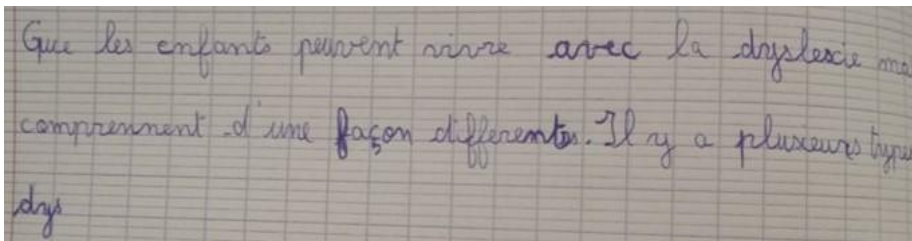 Que les enfants peuvent vivre avec la dyslexie ma
comprennent d'une façon differentes. Il y a pluxeurs type
dys